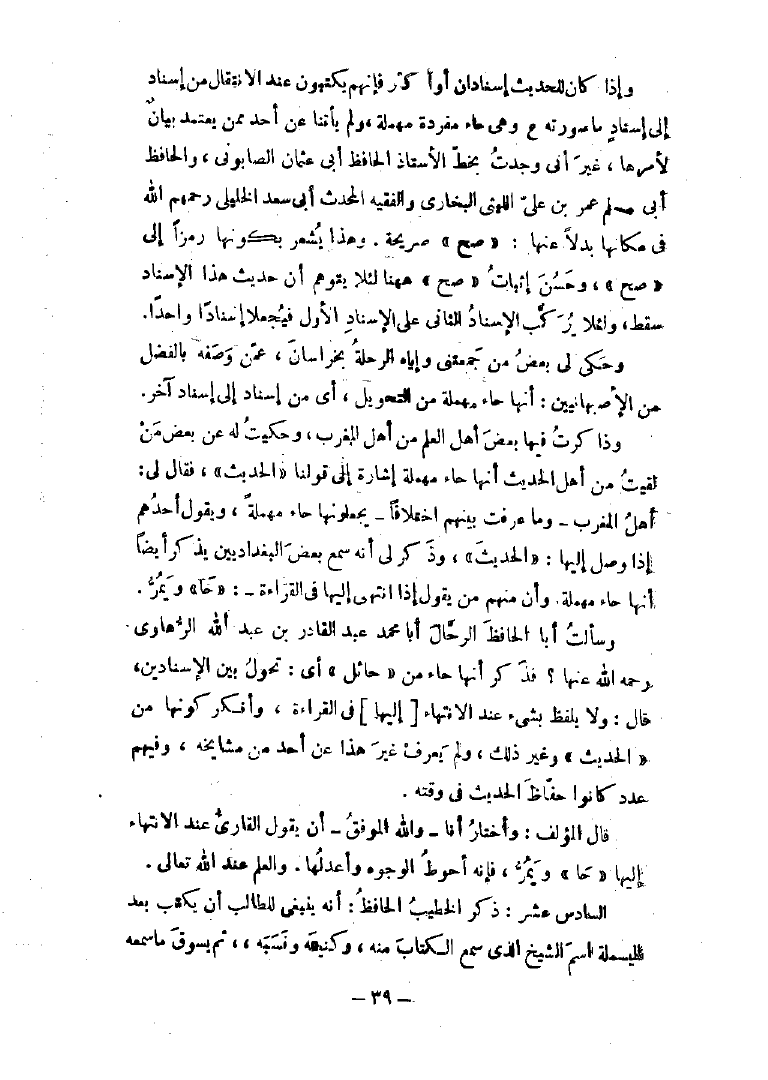 وإذا كان للحديث إسنادان أو أكثر فإنهم يكتبون عند الانتقال من إسناد
إلى إسنادٍ ما صورته ح وهى حاء مفردة مهملة، ولم يأتنا عن أحد ممن يعتمد بيانٌ
لأمرها، غيرَ أنى وجدتُ بخطّ الأستاذ الحافظ أبى عثمان الصابونى، والحافظ
أبى مسلم عمر بن علىّ الليثى البخارى والفقيه المحدث أبى سعد الخليلى رحمهم الله
فى مكانها بدلاً عنها : « صح » صريحة . وهذا يُشعر بكونها رمزاً إلى
« صح »، وحَسُنَ إثباتُ « صح » ههنا لئلا يتوهم أن حديث هذا الإسناد
سقط، ولئلا يُرَكَّب الإسنادُ الثانى على الإسنادِ الأول فيُجعلا إسنادًا واحدًا.
وحَكى لى بعضُ من جمعتنى وإياه الرحلةُ بخراسانَ، عمّن وَصَفَه بالفضل
من الأصبهانيين : أنها حاء مهملة من التحويل، أى من إسناد إلى إسناد آخر.
وذاكرتُ فيها بعضَ أهل العلم من أهل المغرب، وحكيتُ له عن بعض مَنْ
لقيتُ من أهل الحديث أنها حاء مهملة إشارة إلى قولنا «الحديث»، فقال لى:
أهلُ المغرب – وما عرفت بينهم اختلافاً – يجعلونها حاء مهملةً، ويقول أحدُهم
إذا وصل إليها : «الحديثَ»، وذَكر لى أنه سمع بعضَ البغداديين يذكر أيضاً
أنها حاء مهملة. وأن منهم من يقول إذا انتهى إليها فى القراءة – : «حَا» ويَمُرُّ .
وسألتُ أبا الحافظَ الرحَّالَ أبا محمد عبد القادر بن عبد الله الرُّهاوى
رحمه الله عنها ؟ فذَكر أنها حاء من « حائل » أى : تحولُ بين الإسنادين،
قال : ولا يلفظ بشىء عند الانتهاء [ إليها ] فى القراءة، وأنكر كونها من
« الحديث » وغير ذلك، ولم يَعرفْ غيرَ هذا عن أحد من مشايخه، وفيهم
عدد كانوا حفّاظَ الحديث فى وقته .
قال المؤلف : وأختارُ أنا – والله الموفقُ – أن يقول القارئُ عند الانتهاء
إليها « حَا » ويَمُرُّ، فإنه أحوطُ الوجوه وأعدلُها . والعلم عند الله تعالى .
السادس عشر : ذكر الخطيبُ الحافظُ : أنه ينبغى للطالب أن يكتب بعد
البسملة اسمَ الشيخ الذى سمع الكتابَ منه، وكنيتَه ونَسَبَه ،، ثم يسوقَ ما سمعه
– ٣٩ –